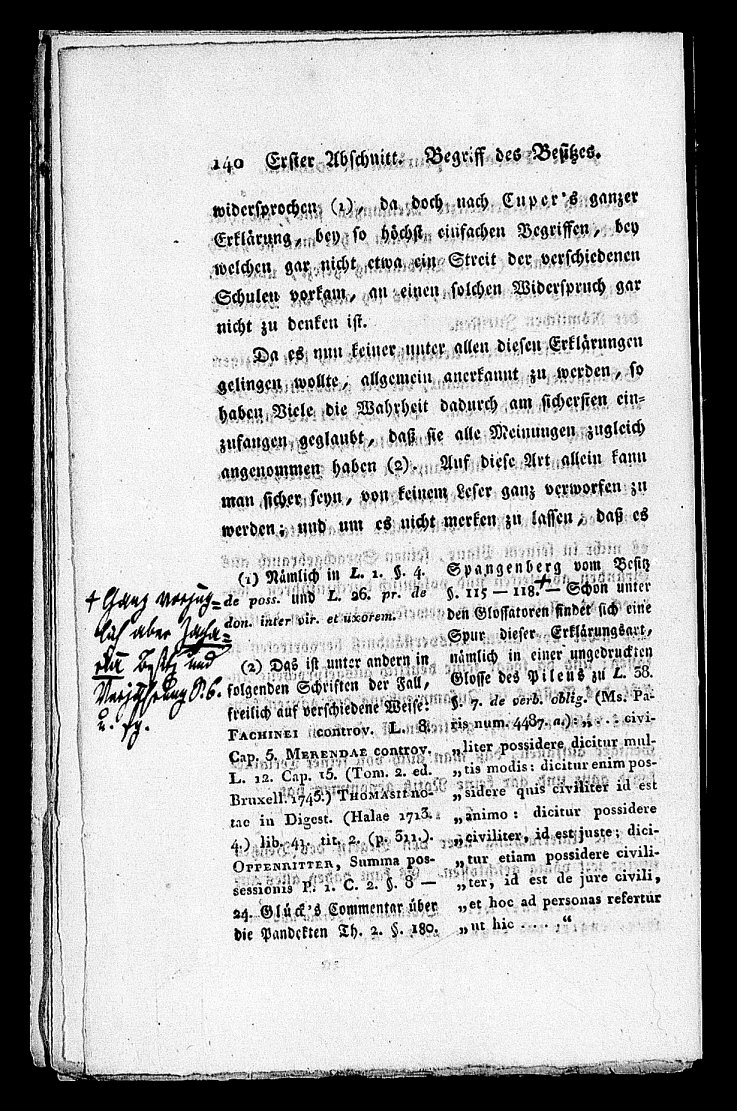 140 Erster Abschnitt. Begriff des Besitzes.
widersprochen (1), da doch nach Cuper's ganzer
Erklärung, bey so höchst einfachen Begriffen, bey
welchen gar nicht etwa ein Streit der verschiedenen
Schulen vorkam, an einen solchen Widerspruch gar
nicht zu denken ist.
Da es nun keiner unter allen diesen Erklärungen
gelingen wollte, allgemein anerkannt zu werden, so
haben Viele die Wahrheit dadurch am sichersten ein=
zufangen geglaubt, daß sie alle Meinungen zugleich
angenommen haben (2). Auf diese Art allein kann
man sicher seyn, von keinem Leser ganz verworfen zu
werden; und um es nicht merken zu lassen, daß es
(1) Nämlich in L. 1. §. 4.
de poss. und L. 26. pr. de
don. inter vir. et uxorem.
(2) Das ist unter andern in
folgenden Schriften der Fall,
freilich auf verschiedene Weise:
FACHINEI controv. L. 8.
Cap. 5. MERENDAE controv.
L. 12. Cap. 15. (Tom. 2. ed.
Bruxell. 1745.) THOMASII no-
tae in Digest. (Halae 1713.
4.) lib. 41. tit. 2. (p. 311.).
OPPENRITTER, Summa pos-
sessionis P. 1. C. 2. §. 8 —
24. Glück's Commentar über
die Pandekten Th. 2. §. 180.
Spangenberg vom Besitz
§. 115 — 118.+ — Schon unter
den Glossatoren findet sich eine
Spur dieser Erklärungsart,
nämlich in einer ungedruckten
Glosse des Pileus zu L. 38.
§. 7. de verb. oblig. (Ms. Pa-
ris num. 4487. a.): „ . . : civi-
„liter possidere dicitur mul-
„tis modis: dicitur enim pos-
„sidere quis civiliter id est
„animo: dicitur possidere
„civiliter, id est juste; dici-
„tur etiam possidere civili-
„ter, id est de jure civili,
„et hoc ad personas refertur
„ut hic . . . . “
+ Ganz vorzüg=
lich aber Zacha=
riä Besitz und
Verjährung S. 6.
u. fg.